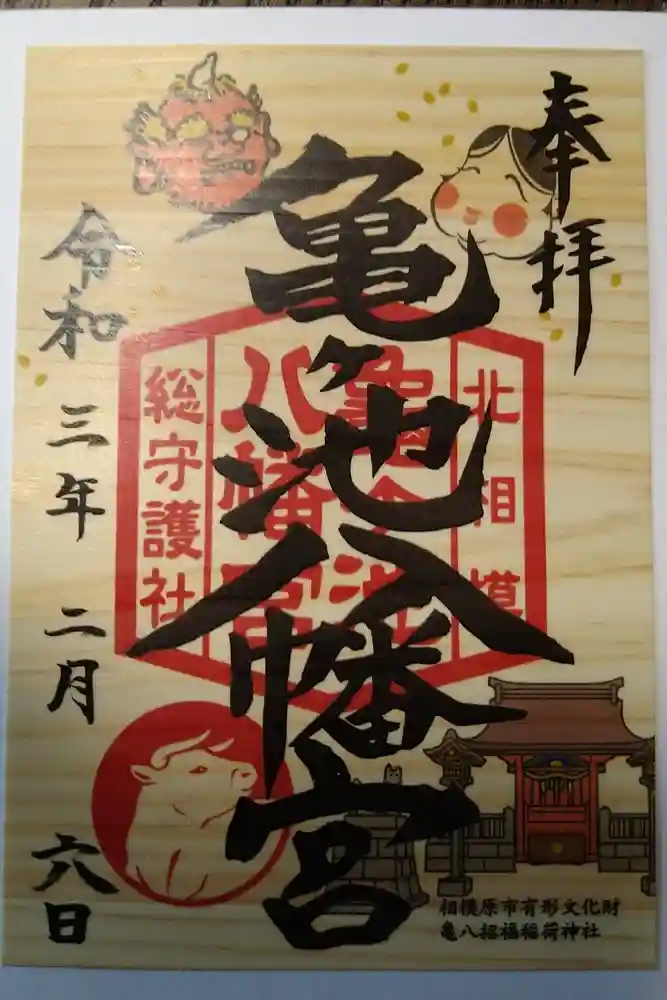 奉拝
亀ヶ池八幡宮
北相模
亀ヶ池
八幡宮
総守護社
令和三年二月六日
相模原市有形文化財
亀八招福稲荷神社